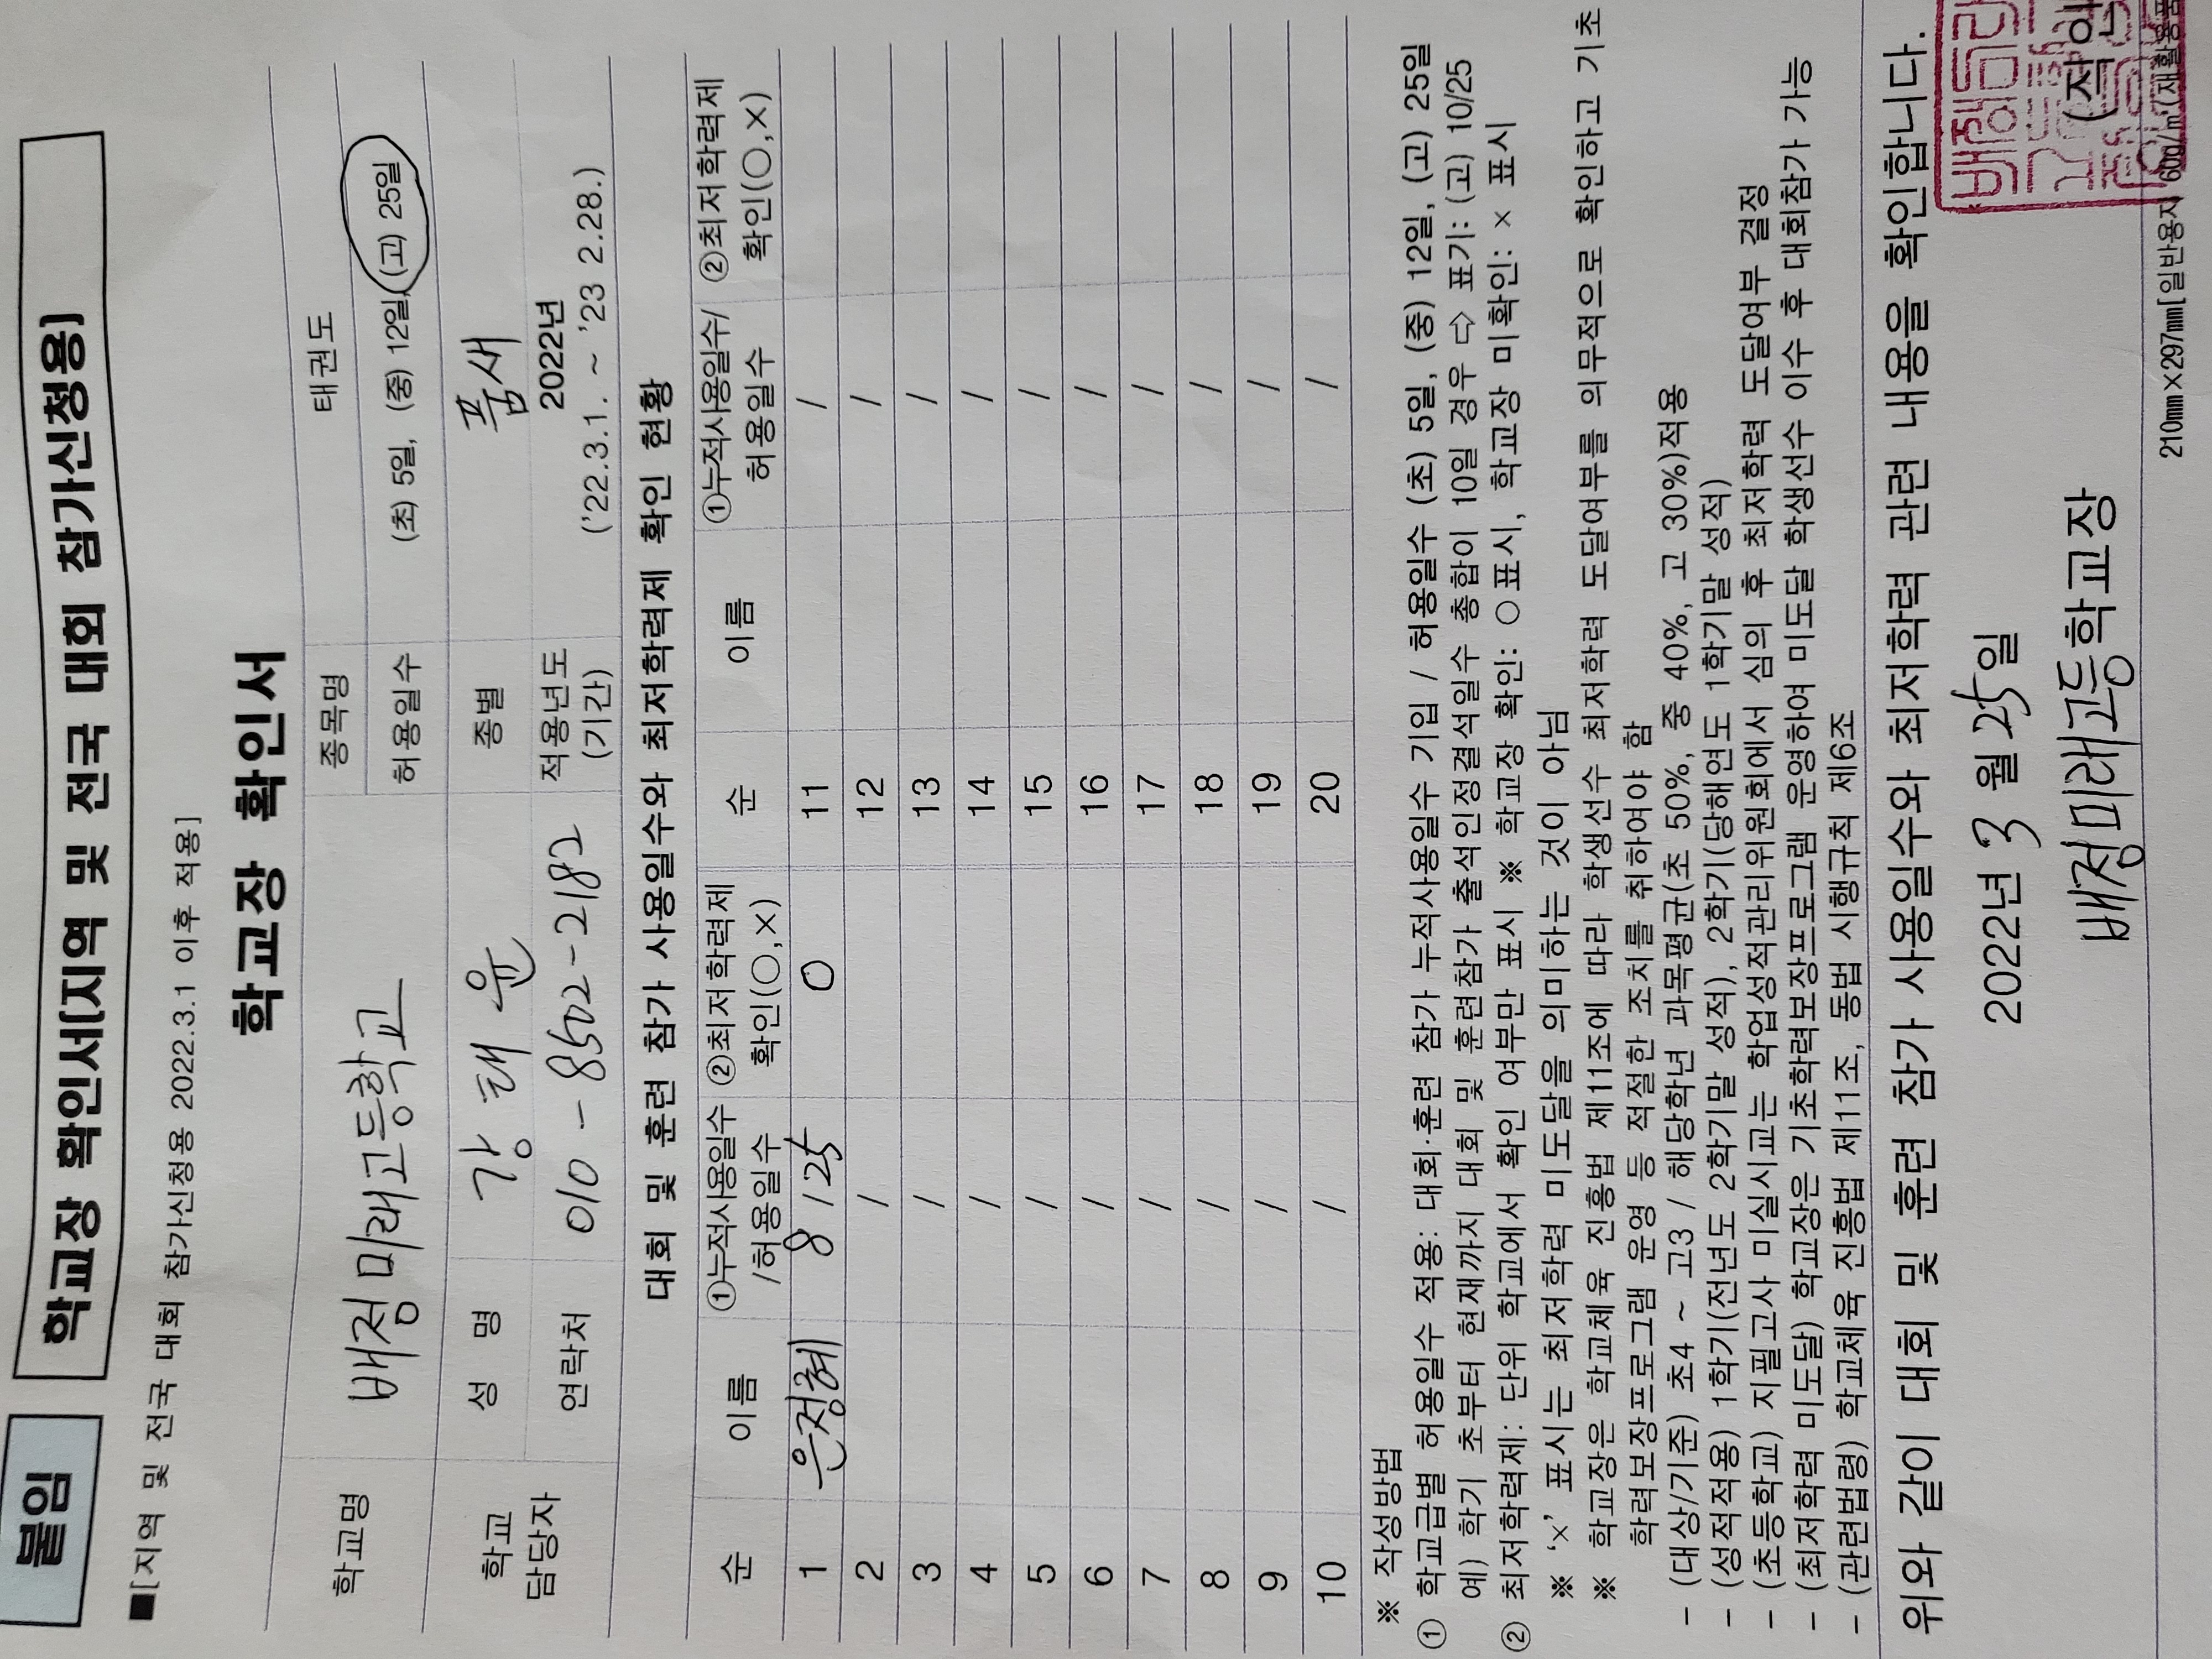 붙임
학교장 확인서[지역 및 전국 대회 참가신청용]
■[지역 및 전국 대회 참가신청용 2022.3.1 이후 적용]
학교장 확인서
학교명 배정미래고등학교 종목명 태권도
허용일수 (초) 5일, (중) 12일, (고) 25일
학교 담당자 성 명 강태윤 종별 품새
연락처 010-8502-2182 적용년도 (기간) 2022년
('22.3.1. ~ '23 2.28.)
대회 및 훈련 참가 사용일수와 최저학력제 확인 현황
순 이름 ①누적사용일수 /허용일수 ②최저학력제 확인(○,×) 순 이름 ①누적사용일수/ 허용일수 ②최저학력제 확인(○,×)
1 은정혜 8 / 25 ○ 11 /
2 / 12 /
3 / 13 /
4 / 14 /
5 / 15 /
6 / 16 /
7 / 17 /
8 / 18 /
9 / 19 /
10 / 20 /
※ 작성방법
① 학교급별 허용일수 적용: 대회·훈련 참가 누적사용일수 기입 / 허용일수 (초) 5일, (중) 12일, (고) 25일
예) 학기 초부터 현재까지 대회 및 훈련참가 출석인정결석일수 총합이 10일 경우 ⇨ 표기: (고) 10/25
② 최저학력제: 단위 학교에서 확인 여부만 표시 ※ 학교장 확인: ○표시, 학교장 미확인: × 표시
※ '×' 표시는 최저학력 미도달을 의미하는 것이 아님
※ 학교장은 학교체육 진흥법 제11조에 따라 학생선수 최저학력 도달여부를 의무적으로 확인하고 기초
학력보장프로그램 운영 등 적절한 조치를 취하여야 함
- (대상/기준) 초4 ~ 고3 / 해당학년 과목평균(초 50%, 중 40%, 고 30%)적용
- (성적적용) 1학기(전년도 2학기말 성적), 2학기(당해연도 1학기말 성적)
- (초등학교) 지필고사 미실시교는 학업성적관리위원회에서 심의 후 최저학력 도달여부 결정
- (최저학력 미도달) 학교장은 기초학력보장프로그램 운영하여 미도달 학생선수 이수 후 대회참가 가능
- (관련법령) 학교체육 진흥법 제11조, 동법 시행규칙 제6조
위와 같이 대회 및 훈련 참가 사용일수와 최저학력 관련 내용을 확인합니다.
2022년 3월 25일
배정미래고등학교장 (직인
210㎜×297㎜[일반용지 60g/㎡(재활용품